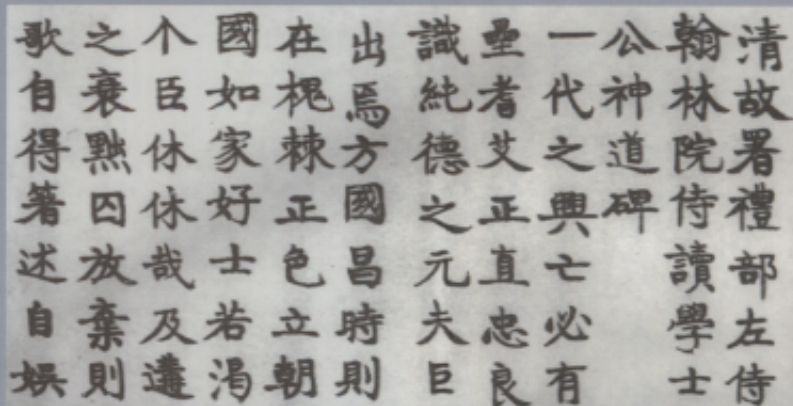 清故署禮部左侍
翰林院侍讀學士
公神道碑
一代之興亡必有
壘耆艾正直忠良
識純德之元夫巨
出焉方國昌時則
在槐棘正色立朝
國如家好士若渴
个臣休休哉及遘
之衰黜囚放棄則
歌自得箸述自娛